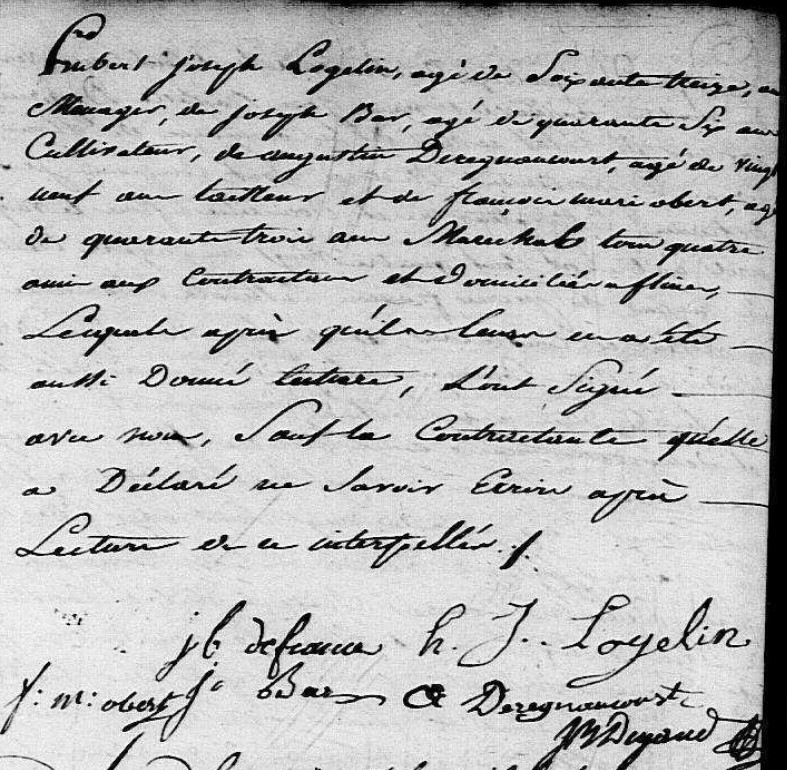 joseph Logelin, agé de Soixante treize, an
Menager, de joseph Bar, agé de quarante Six ans
Cultivateur, de augustin Deregnaucourt, agé de vingt
neuf ans tailleur et de françois marie obert, agé
de quarante trois ans Marechal tous quatre
amis aux Contractans et domiciliés a flines,
Lesquels après qu'il leur en a été
aussi Donné lecture, L'ont Signé
avec nous, Sauf la Contractante qu'elle
a Déclaré ne Savoir Ecrire après
Lecture de ce interpellée ./.
jb defrance h. J. Logelin
f: m: obert j Bar Deregnaucourt